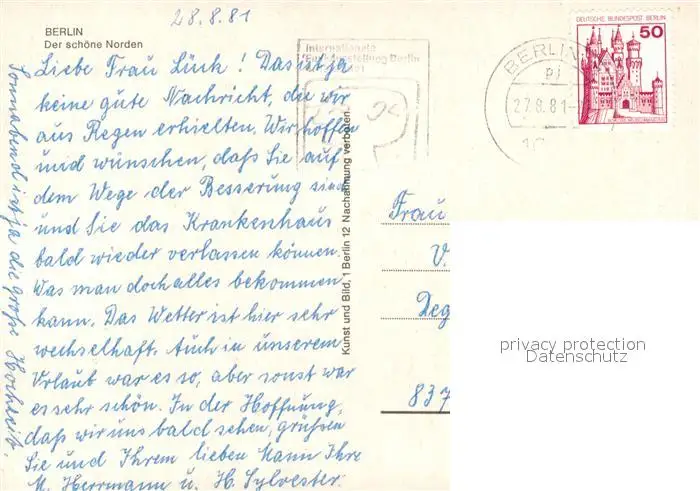 28.8.81
BERLIN
Der schöne Norden
Liebe Frau Lück! Das ist ja
keine gute Nachricht, die wir
aus Regen erhielten. Wir hoffen
und wünschen, daß Sie auf
dem Wege der Besserung sind
und Sie das Krankenhaus
bald wieder verlassen können.
Was man doch alles bekommen
kann. Das Wetter ist hier sehr
wechselhaft. Auch in unserem
Urlaub war es so, aber sonst war
es sehr schön. In der Hoffnung,
daß wir uns bald sehen, grüßen
Sie und Ihrem lieben Mann Ihre
M. Herrmann u. H. Sylvester.
Sonnabend ist ja die große Hochzeit.
Kunst und Bild, 1 Berlin 12 Nachahmung verboten
Internationale
Funkausstellung Berlin
BERLIN
27.8.81
DEUTSCHE BUNDESPOST BERLIN
50
Frau
V.
Deg
837
privacy protection
Datenschutz